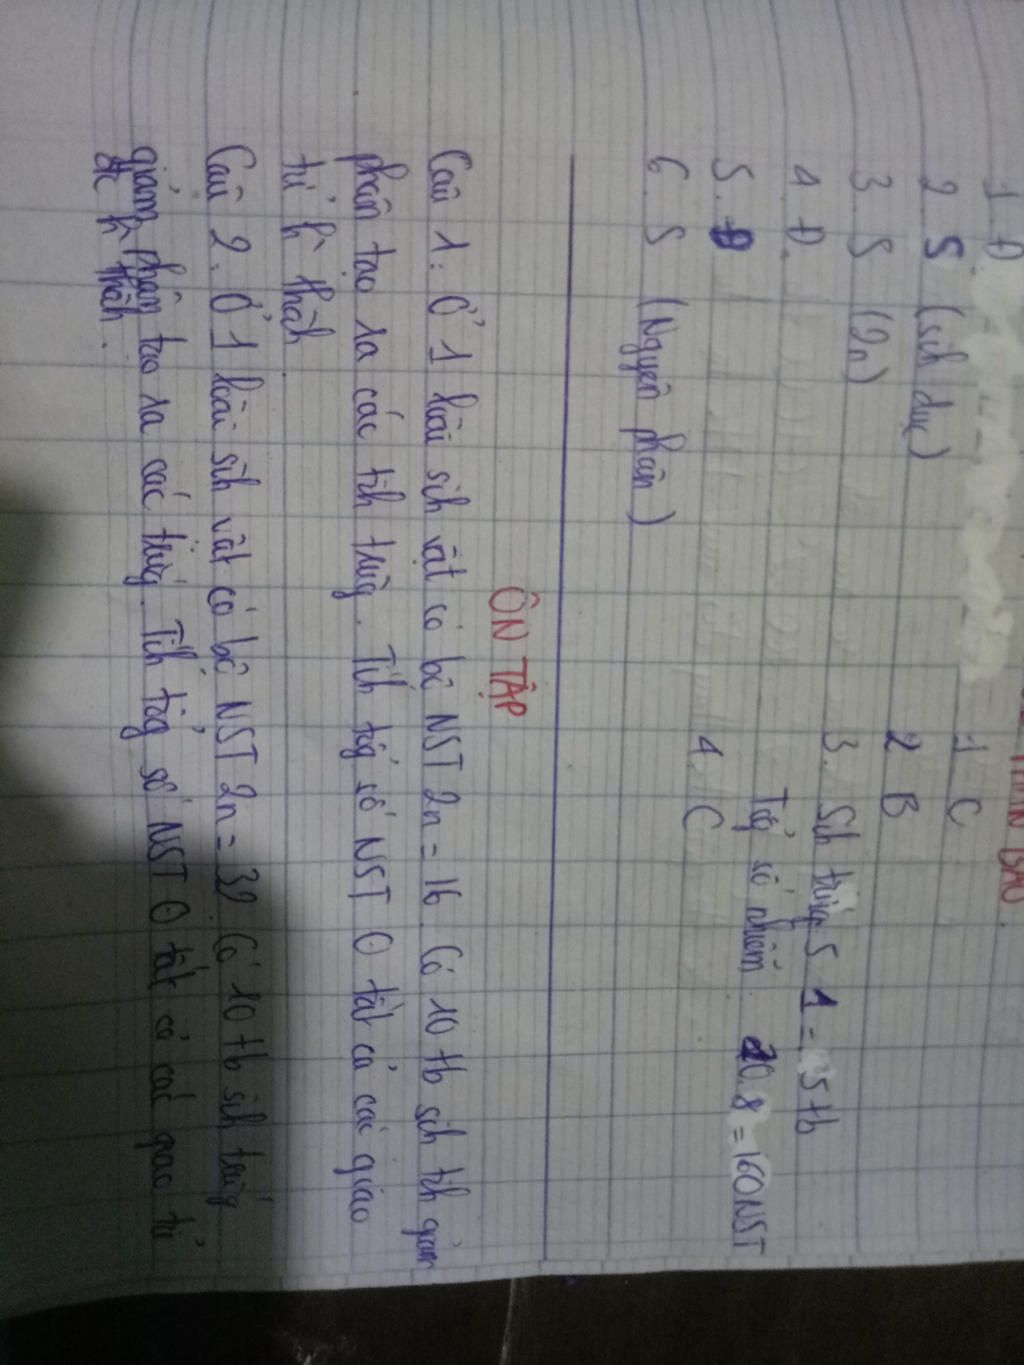 BÀO
1. Đ
2. S (sih dục)
3. S (2n)
4. Đ.
5. Đ
6. S (Nguyên phân)
1 C
2 B
3. Sih trứng 5.1 = 5 tb
Tổg số nhiễm 20.8 = 160 NST
4. C
ÔN TẬP
Câu 1: Ở 1 loài sih vật có bộ NST 2n = 16. Có 10 tb sih tih giảm
phân tạo ra các tih trùg. Tíh tổg số NST Ở tất cả các giao
tử h thàh
Câu 2: Ở 1 loài sih vật có bộ NST 2n = 32. Có 10 tb sih trứg
giảm phân tạo ra các trứg. Tíh tổg số NST Ở tất cả các giao tử
đc h thàh.